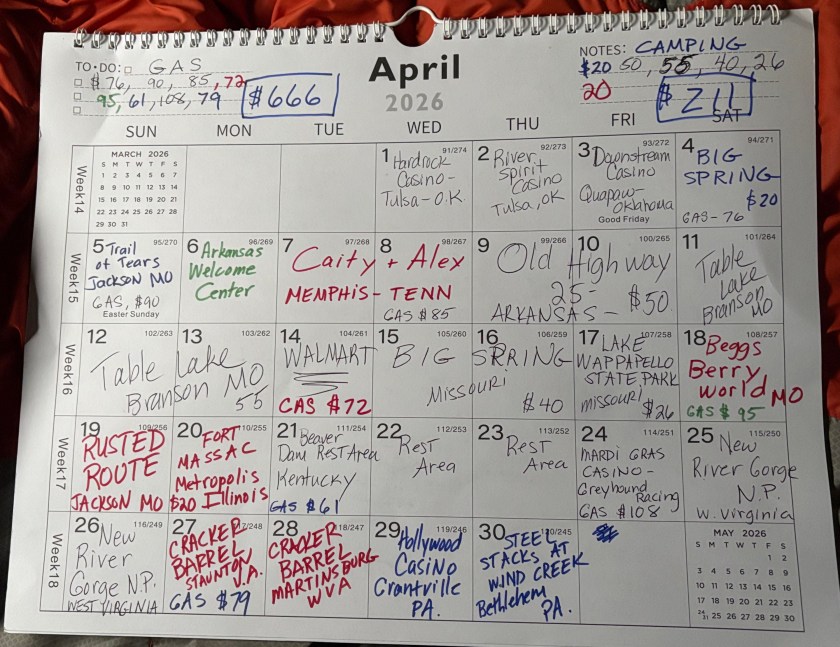 TO•DO: GAS
$76, 90, 85, 72
95, 61, 108, 79
$666
April
2026
NOTES: CAMPING
$20 50, 55, 40, 26
20
$211
SUN MON TUE WED THU FRI SAT
Week14
MARCH 2026
S M T W T F S
1 2 3 4 5 6 7
8 9 10 11 12 13 14
15 16 17 18 19 20 21
22 23 24 25 26 27 28
29 30 31
1 91/274
Hardrock
Casino-
Tulsa-O.K.
2 92/273
River
Spirit
Casino
Tulsa, OK
3 93/272
Downstream
Casino
Quapaw-
Oklahoma
Good Friday
4 94/271
BIG
SPRING
$20
GAS-76
Week15
5 95/270
Trail
of Tears
Jackson MO
GAS, $90
Easter Sunday
6 96/269
Arkansas
Welcome
Center
7 97/268
8 98/267
Caity + Alex
MEMPHIS-TENN
GAS $85
9 99/266
10 100/265
Old Highway
25-
ARKANSAS-$50
11 101/264
Table
Lake
Branson
MO
Week16
12 102/263
13 103/262
Table Lake
Branson MO
55
14 104/261
WALMART
GAS $72
15 105/260
16 106/259
BIG SPRING
Missouri
$40
17 107/258
LAKE
WAPPAPELLO
STATE PARK
missouri
$26
18 108/257
Beggs
Berry
World MO
GAS $95
Week17
19 109/256
RUSTED
ROUTE
JACKSON MO
20 110/255
FORT
MASSAC
Metropolis
$20 Illinois
21 111/254
Beaver
Dam Rest Area
Kentucky
GAS $61
22 112/253
Rest
Area
23 113/252
Rest
Area
24 114/251
MARDI GRAS
CASINO-
Greyhound
Racing
GAS $108
25 115/250
New
River Gorge
N.P.
W. Virginia
Week18
26 116/249
New
River
Gorge N.P.
WEST VIRGINIA
27 117/248
CRACKER
BARREL
STAUNTON
V.A.
GAS $79
28 118/247
CRACKER
BARREL
MARTINSBURG
WVA
29 119/246
Hollywood
Casino
Grantville
PA.
30 120/245
STEEL
STACKS AT
WIND CREEK
Bethlehem
PA.
MAY 2026
S M T W T F S
1 2
3 4 5 6 7 8 9
10 11 12 13 14 15 16
17 18 19 20 21 22 23
24/31 25 26 27 28 29 30